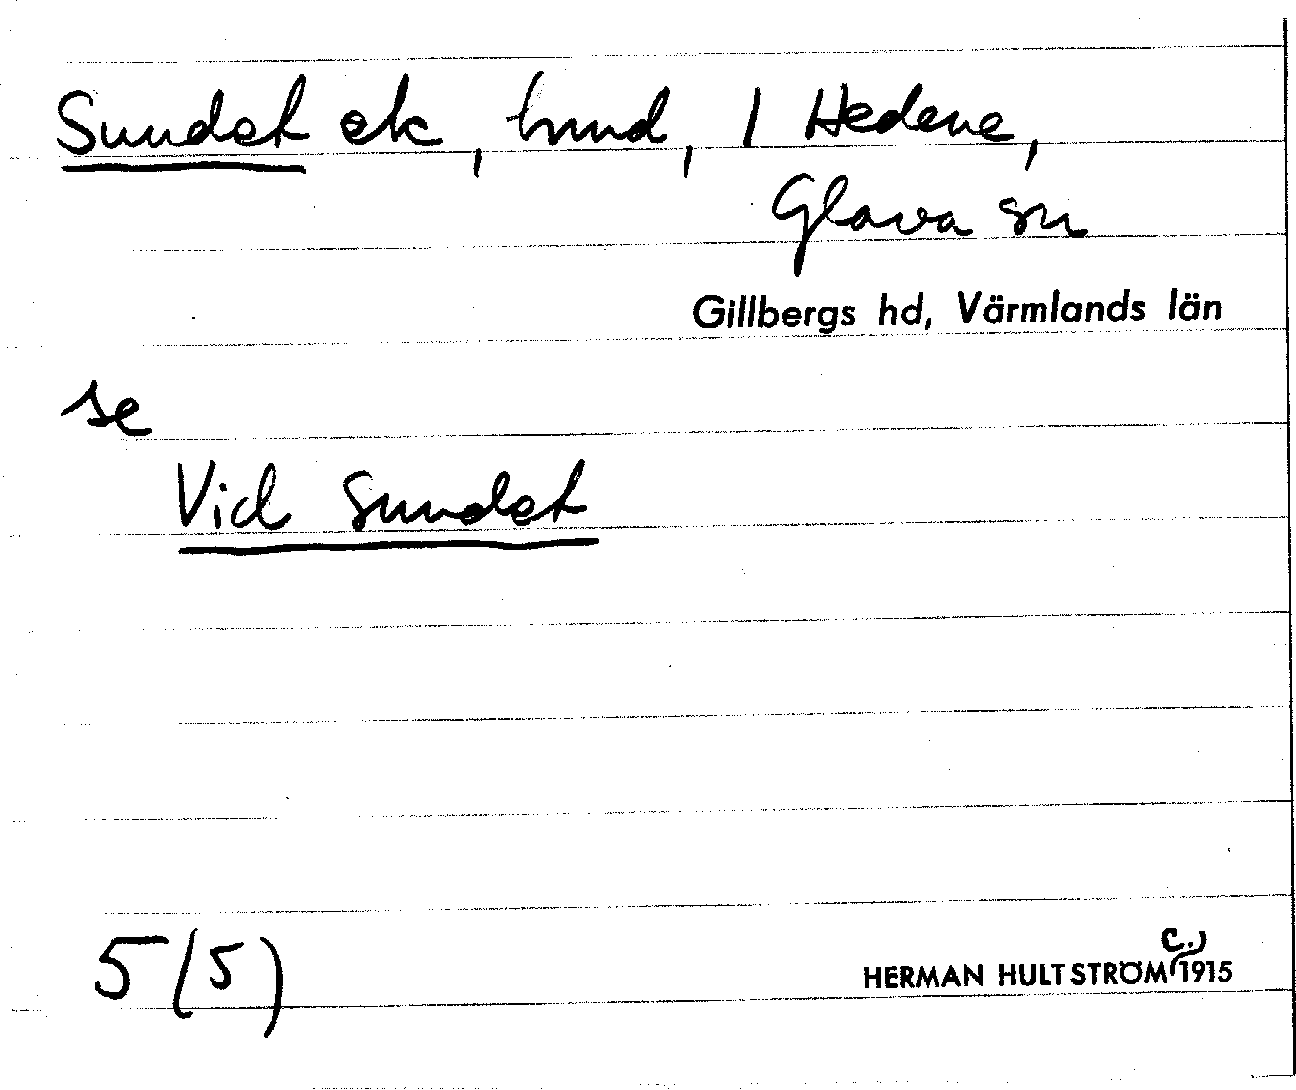 Sundet ek, hmd, 1 Hedene,
Glava sn
Gillbergs hd, Värmlands län
se
Vid sundet
5 (5)
c.
HERMAN HULTSTRÖM 1915